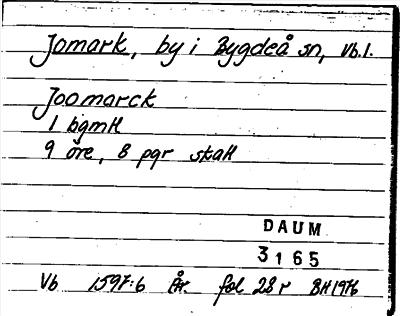 Jomark, by i Bygdeå sn, Vb.l.
Joomarck
1 bgmtl
9 öre, 8 pgr skatt
DAUM
3165
Vb 1597:6 År. fol 28 r BH 1976